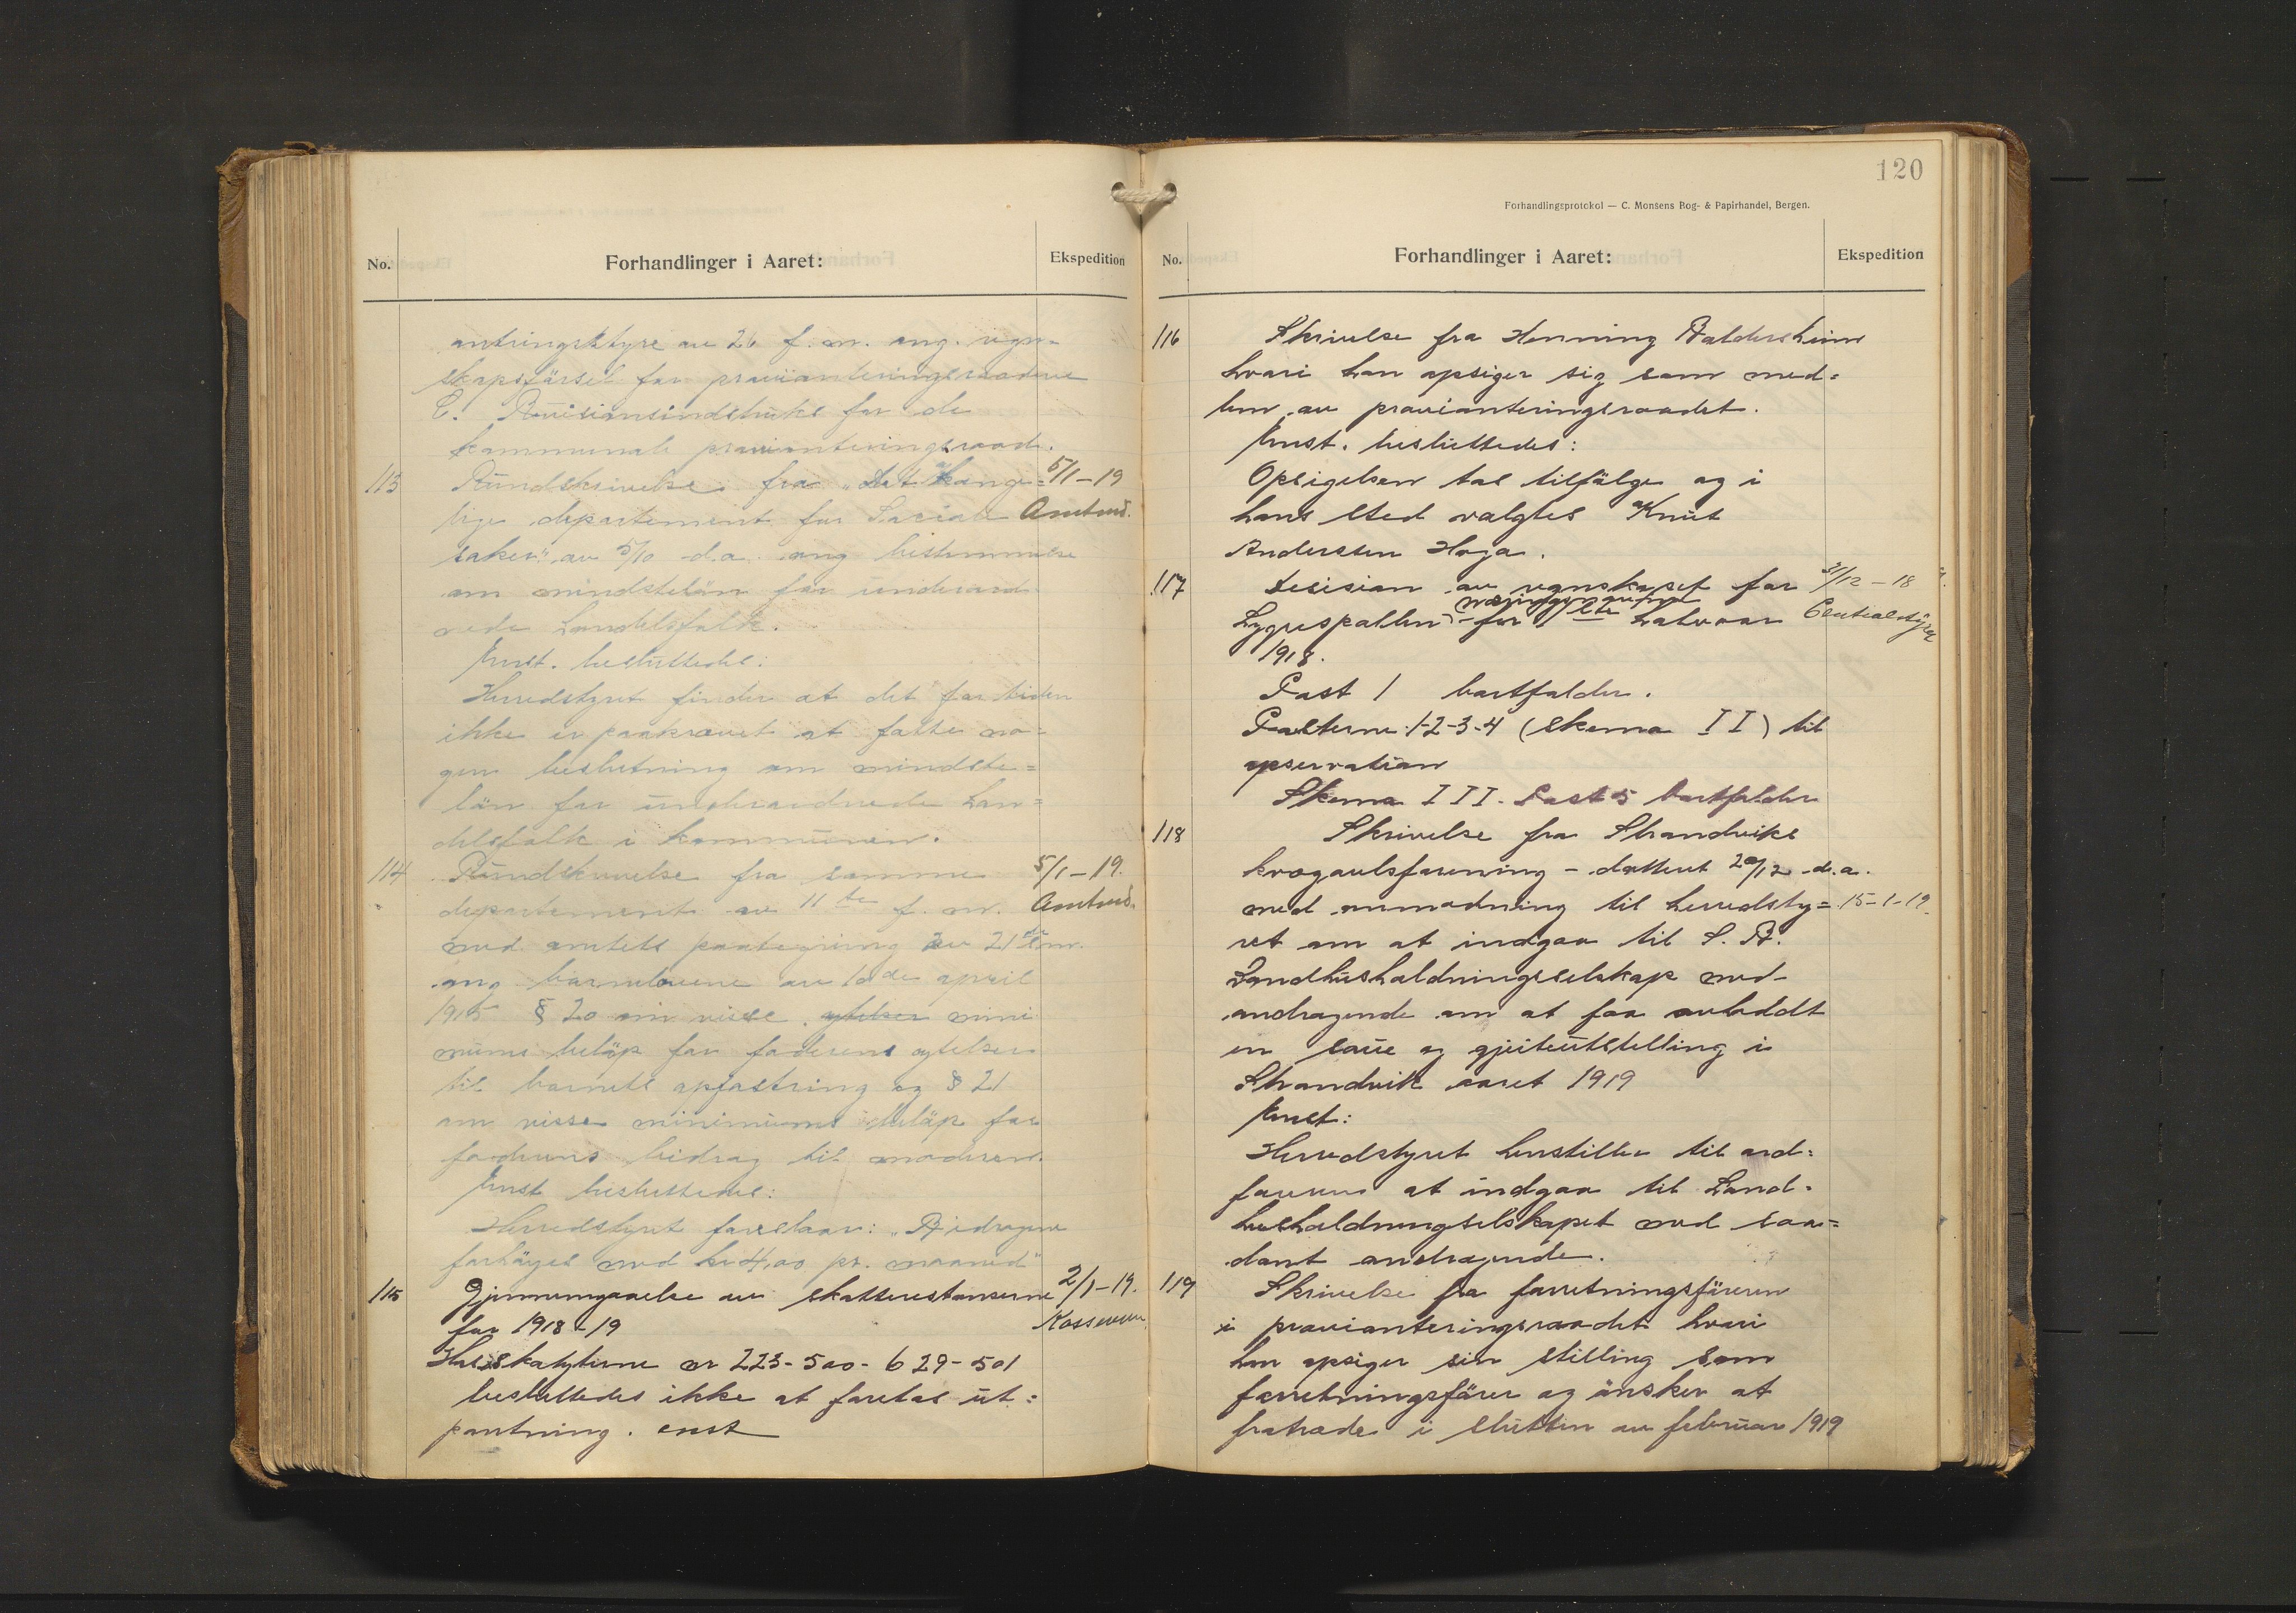 No.
Forhandlinger i Aaret:
Ekspedition
antringsstyre av 26 f. m. ang. regn-
skapsførsel for provianteringsraadene
C. Revisionsindstruks for de
kommunale provianteringsraad.
113 Rundskrivelse fra "Det konge= 5/1-19
lige departement for Sociale Amtmd.
saker" av 5/10 d.a. ang bestemmelse
om mindstelön for underord
nede handelsfolk.
Enst. besluttedes:
Herredstyret finder at det for tiden
ikke er paakrævet at fatte no=
gen beslutning om mindste=
lön for underordnede han=
delsfolk i kommunen.
114 Rundskrivelse fra samme 5/1-19.
departement av 11te f. m. Amtmd.
med amtets paategning av 21de s.m.
ang barnelovene av 10de april
1915 § 20 om visse ytelser mini
mums beløp for faderens ytelser
til barnets opfostring og § 21
om visse minimums beløp for
faderens bidrag til moderen.
Enst besluttedes:
Herredstyret foreslaar: "Bidragene
forhøies med kr 4,00 pr. maaned"
115 Gjennemgaaelse av skatterestanserne 2/1-19.
for 1918-19 Kasserer
Hos skatyterne nr 223-500-629-501
besluttedes ikke at foretas ut=
pantning. enst
120
Forhandlingsprotokol — C. Monsens Bog- & Papirhandel, Bergen.
No.
Forhandlinger i Aaret:
Ekspedition
116 Skrivelse fra Henning Baldersheim
hvori han opsiger sig som med=
lem av provianteringsraadet.
Enst. besluttedes:
Opsigelsen tas tilfølge og i
hans sted valgtes Knut
Anderssen Hoga.
117 Desision av regnskapet for 31/12-18
Lygrespollen for 1ste halvaar Centralstyre
1918.
Post 1 bortfalder.
Posterne 1-2-3-4 (skema II) til
opservation
Skema III. Post 5 bortfalder
118 Skrivelse fra Strandviks
kvægavlsforening - datteret 20/12 d.a.
med anmodning til herredsty= 15-1-19.
ret om at indgaa til S. B.
Landhusholdningsselskap med
andragende om at faa avholdt
en saue og gjeiteutstelling i
Strandvik aaret 1919
Enst:
Herredstyret henstiller til ord=
føreren at indgaa til Land=
husholdningselskapet med saa=
dant andragende.
119 Skrivelse fra forretningsføreren
i provianteringsraadet hvori
han opsiger sin stilling som
forretningsfører og ønsker at
fratræde i slutten av februar 1919